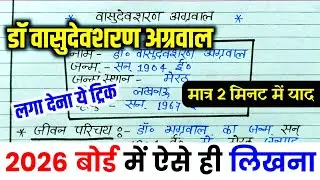 * वासुदेवशरण अग्रवाल *
डॉ वासुदेवशरण अग्रवाल
नाम - डॉ० वासुदेवशरण अग्रवाल
जन्म - सन् 1904 ई०
जन्म स्थान - मेरठ
लगा देना ये ट्रिक
लखनऊ
मात्र 2 मिनट में याद
सन् 1967
* जीवन परिचय :- डॉ० अग्रवाल का जन्म सन्
2026 बोर्ड में ऐसे ही लिखना